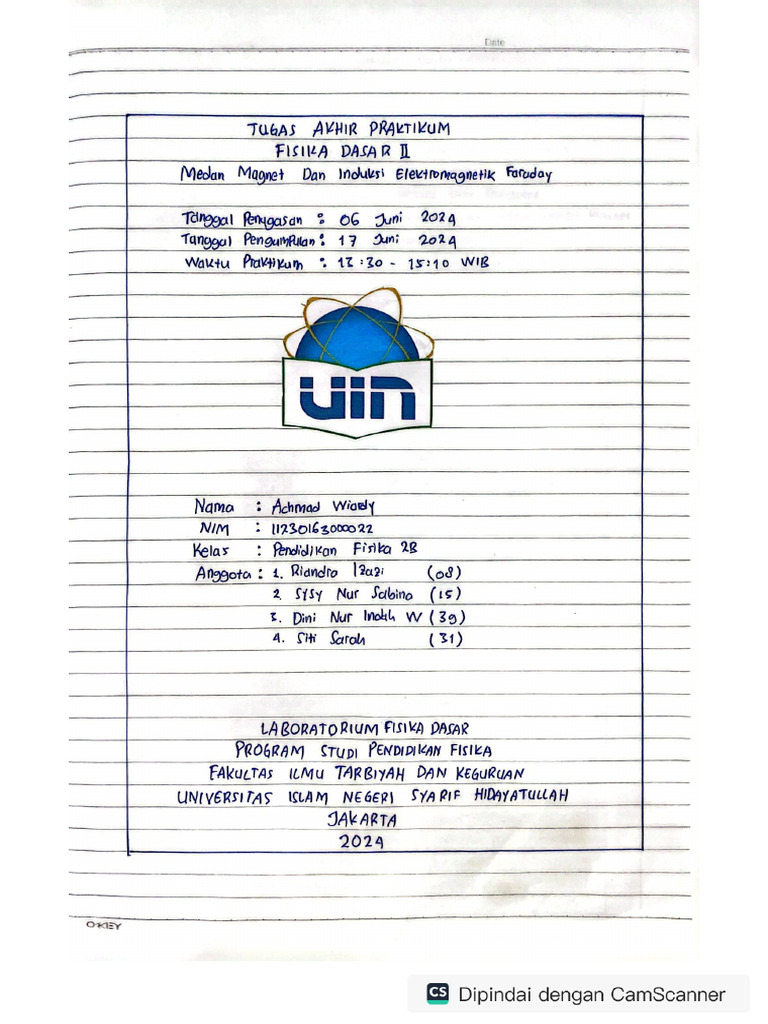 Date
TUGAS AKHIR PRAKTIKUM
FISIKA DASAR II
Medan Magnet Dan Induksi Elektromagnetik Faraday
Tanggal Penugasan : 06 Juni 2024
Tanggal Pengumpulan : 17 Juni 2024
Waktu Praktikum : 13:30 - 15:10 WIB
UIN
Nama : Achmad
NIM : 11230163000022
Kelas : Pendidikan Fisika 2B
Anggota : 1. Riandra Izazi (08)
2. Sysy Nur Salbina (15)
3. Dini Nur Indah W (39)
4. Siti Sarah (31)
LABORATORIUM FISIKA DASAR
PROGRAM STUDI PENDIDIKAN FISIKA
FAKULTAS ILMU TARBIYAH DAN KEGURUAN
UNIVERSITAS ISLAM NEGERI SYARIF HIDAYATULLAH
JAKARTA
2024
O-KIEY
CS Dipindai dengan CamScanner